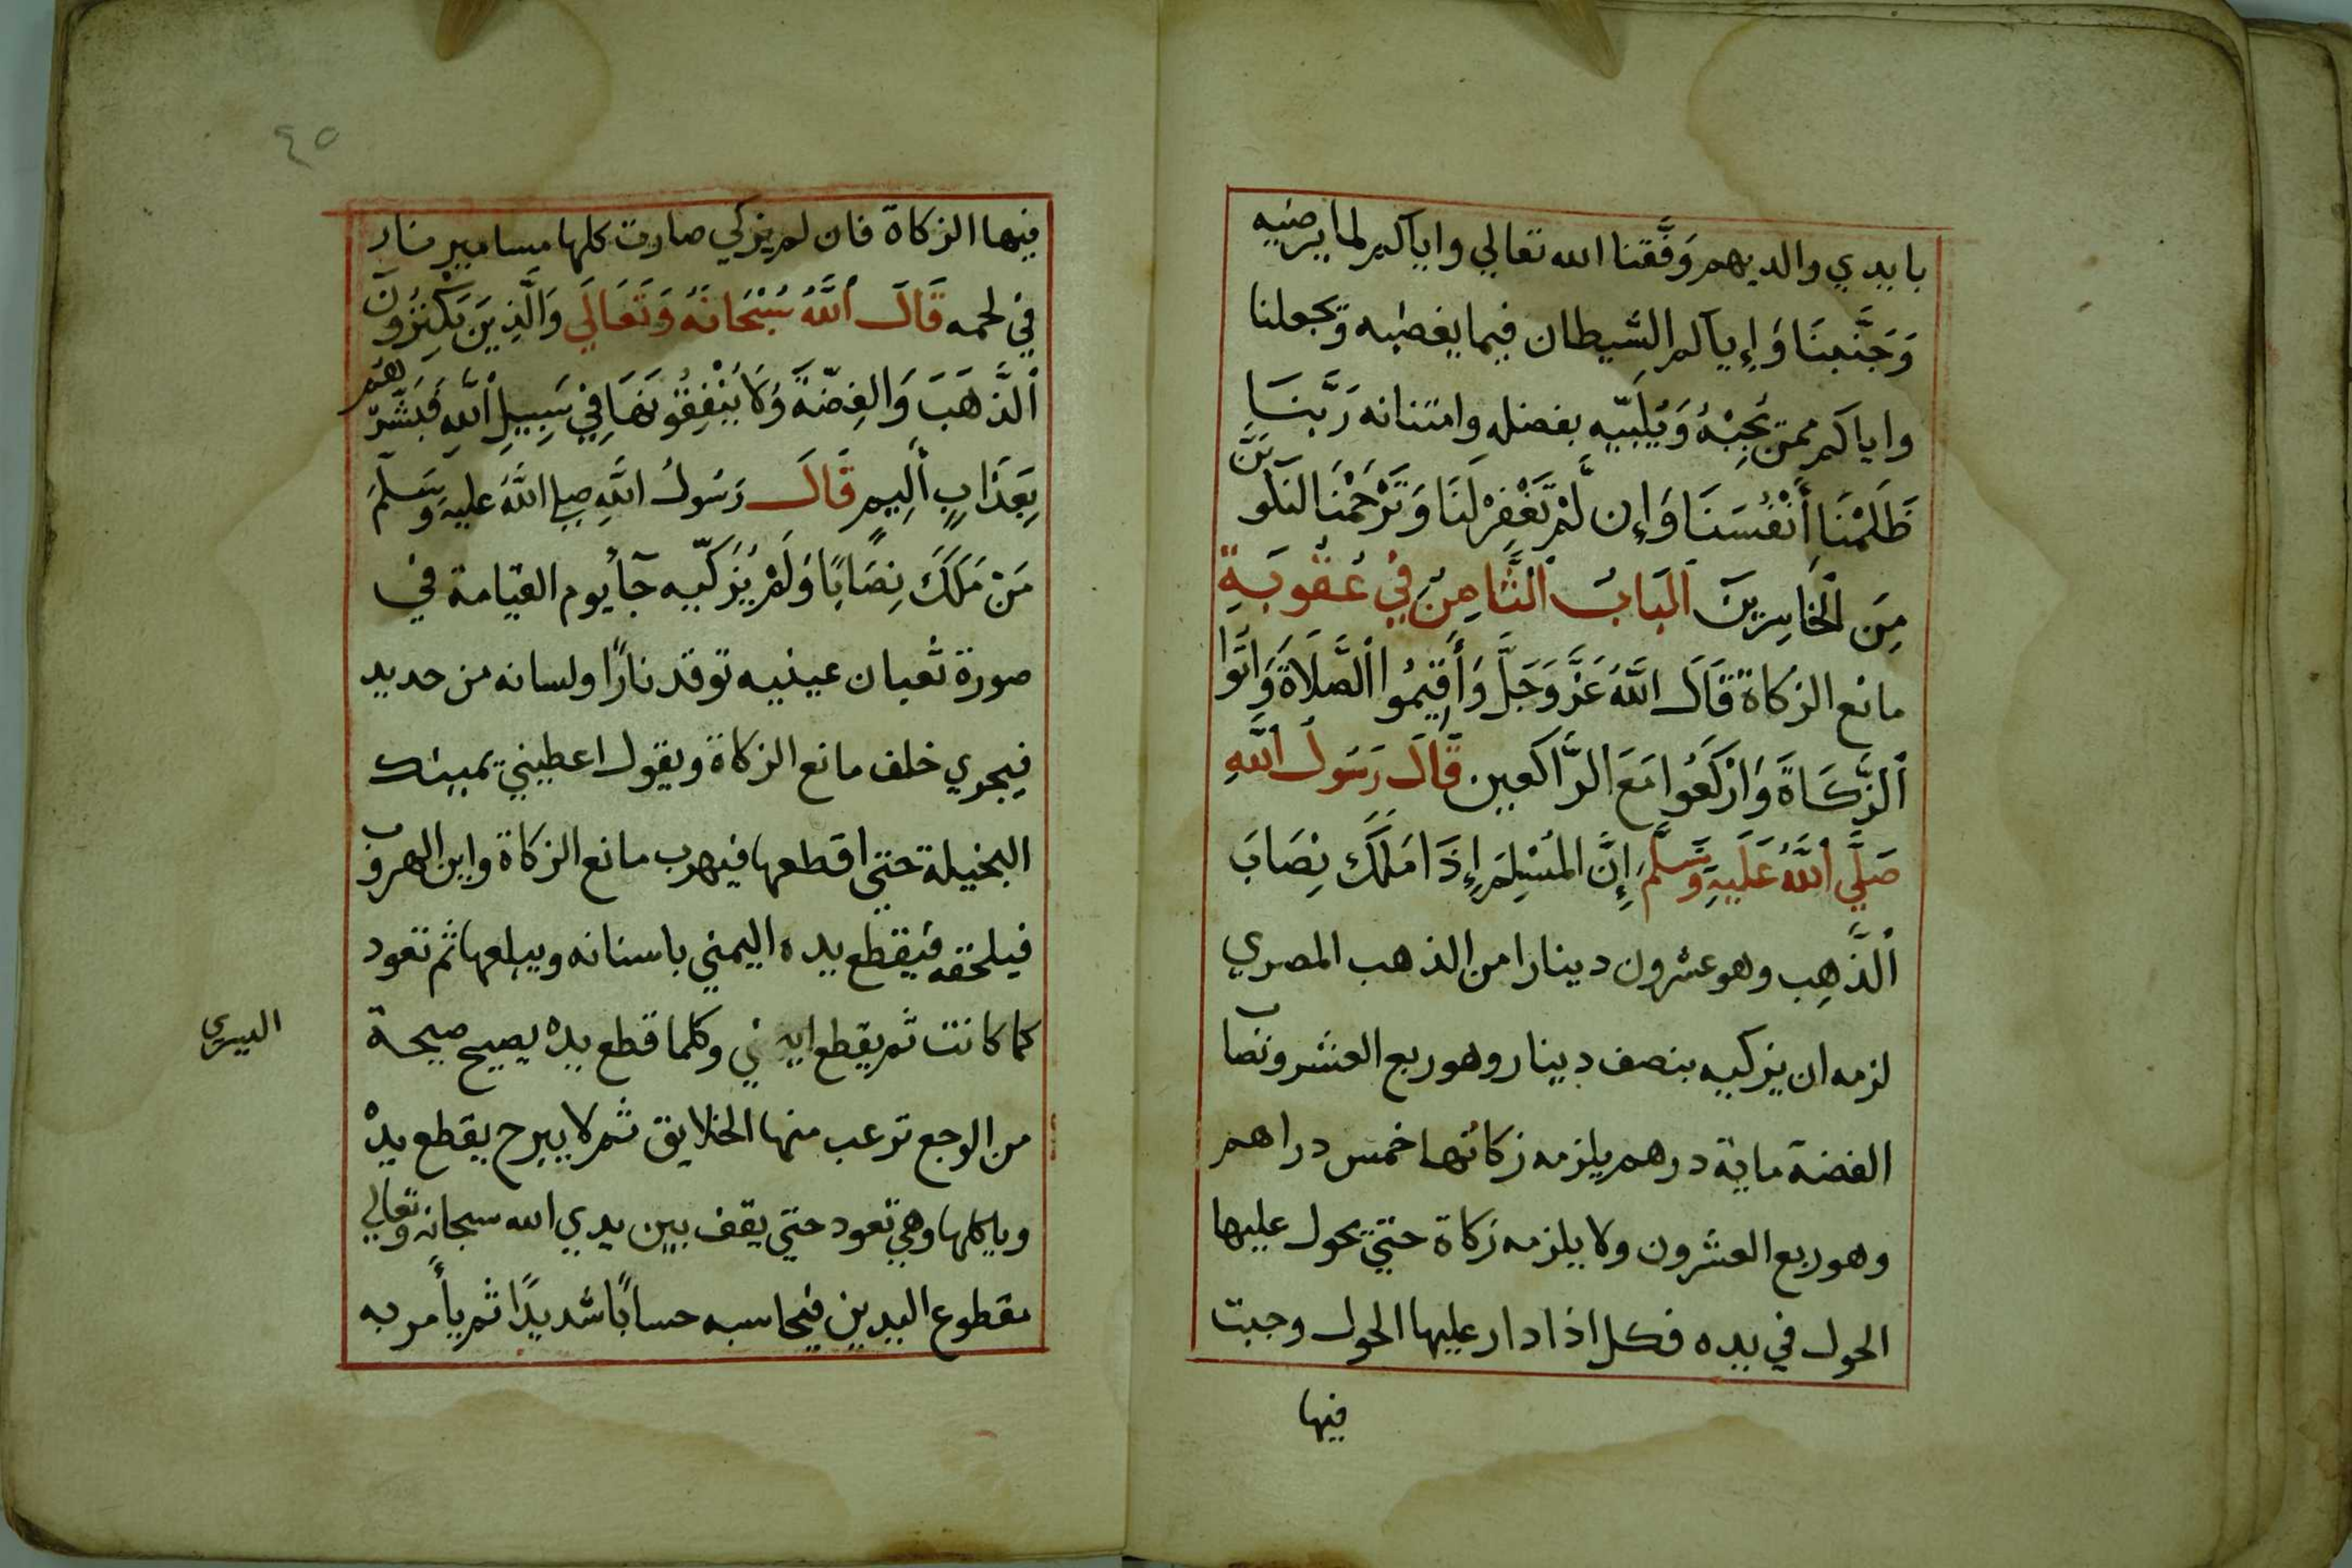 بايدي والديهم وَفَّقنا الله تعالي واياكم لما يرضيه
وَجَنَّبنَا وَإِيآكم الشَّيطان فيما يغضبه وتجعلنا
واياكم ممن يُجِبْهُ وَيُلَبِّيه بفضله وامتنانه رَبَّنَا
ظَلَمْنَا أَنْفُسَنَا وَإِن لَّمْ تَغْفِرْ لَنَا وَتَرْحَمْنَا لنكونَنَّ
مِنَ الْخَاسِرِينَ اَلبَابُ اَلثَّامِنُ فِي عُقُوبَةِ
مانع الزكاة قَالَ اللَّهُ عَزَّ وَجَلَّ وَأَقِيمُوا اَلصَّلَاةَ وَاتُوا
اَلزَّكَاةَ وَارْكَعُوا مَعَ الرَّاكعين قَالَ رَسُولُ اَللَّهِ
صَلَّي اَللَّهُ عَلَيهِ وَسَلَّمَ إِنَّ المُسْلِمَ إِذَا مَلَكَ نِصَابَ
اَلذَّهِب وهو عشرون دينارا من الذهب المصري
لزمه ان يزكيه بنصف دينار وهو ربع العشر ونصاب
الفضة ماية درهم يلزمه زكاتها خمس دراهم
وهو ربع العشرون ولا يلزمه زكاة حتي يحول عليها
الحول في يده فكل اذا دار عليها الحول وجبت
فيها
٤٥
فيها الزكاة فان لم يزكي صارت كلها مسامير منار
في لحمه قَالَ اَللَّهُ سُبْحَانَهُ وَتَعَالَي وَالَّذِينَ يَكْنِزُونَ
اَلذَّهَبَ وَالفِضّةَ وَلَا يُنْفِقُونَهَا فِي سَبِيلِ اَللَّهِ فَبَشِّرْهُم
بِعَذَابٍ أَلِيمٍ قَالَ رَسُولُ اللَّهِ صلي اللَّهُ عليه وَسَلَّمَ
مَنْ مَلَكَ نِصَابًا وَلَمْ يُزَكّيه جآ يوم القيامة في
صورة ثعبان عينيه توقد نارًا ولسانه من حديد
فيجري خلف مانع الزكاة ويقول اعطيني يمينك
البخيلة حتي اقطعها فيهرب مانع الزكاة واين الهروب
فيلحقه فيقطع يده اليمني باسنانه ويبلعها ثم تعود
كما كانت ثم يقطع وكلما قطع يده يصيح صيحة
اليسري
من الوجع ترعب منها الخلايق ثم لا يبرح يقطع يده
وياكلها وهي تعود حتي يقف بين يدي الله سبحانه وتعالي
مقطوع اليدين فيحاسبه حسابًا شديدًا ثم يأمر به